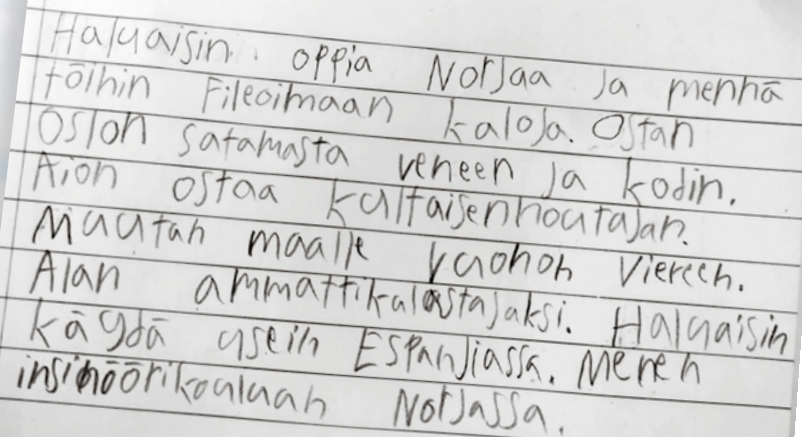 Haluaisin oppia Norjaa ja mennä
töihin Fileoimaan kaloja. Ostan
Oslon satamasta veneen ja kodin.
Aion ostaa kultaisennoutajan.
Muutan maalle vuonon viereen.
Alan ammattikalastajaksi. Haluaisin
käydä usein Espanjiassa. Menen
insinöörikouluun Norjassa.